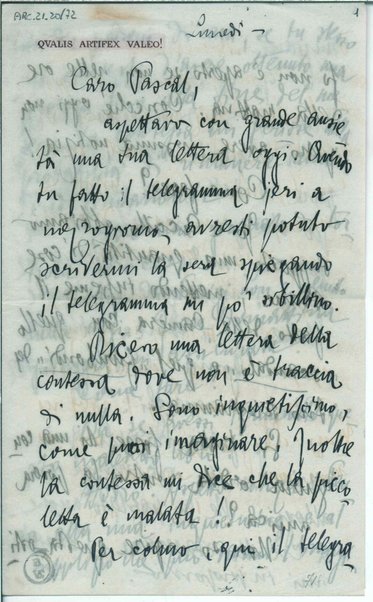 ARC.21.20/72
1
Lunedì -
QVALIS ARTIFEX VALEO!
Caro Pascal,
aspettavo con grande ansie
tà una tua lettera oggi. Avendo
tu fatto il telegramma jeri a
mezzogiorno, avresti potuto
scrivermi la sera spiegando
il telegramma un po' sibillino.
Ricevo una lettera della
contessa dove non è traccia
di nulla. Sono inquietissimo,
come puoi imaginare, Inoltre
la contessa mi dice che la picco
letta è malata!
Per colmo, qui il telegra